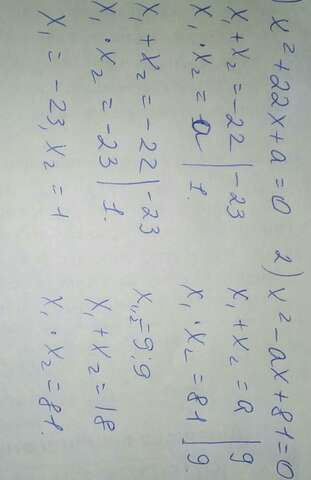 ) x² + 22x + a = 0
x₁ + x₂ = -22 | -23
x₁ · x₂ = a | 1.
x₁ + x₂ = -22 | -23
x₁ · x₂ = -23 | 1.
x₁ = -23, x₂ = 1
2) x² - ax + 81 = 0
x₁ + x₂ = a | 9
x₁ · x₂ = 81 | 9.
x₁,₂ = 9; 9
x₁ + x₂ = 18
x₁ · x₂ = 81.